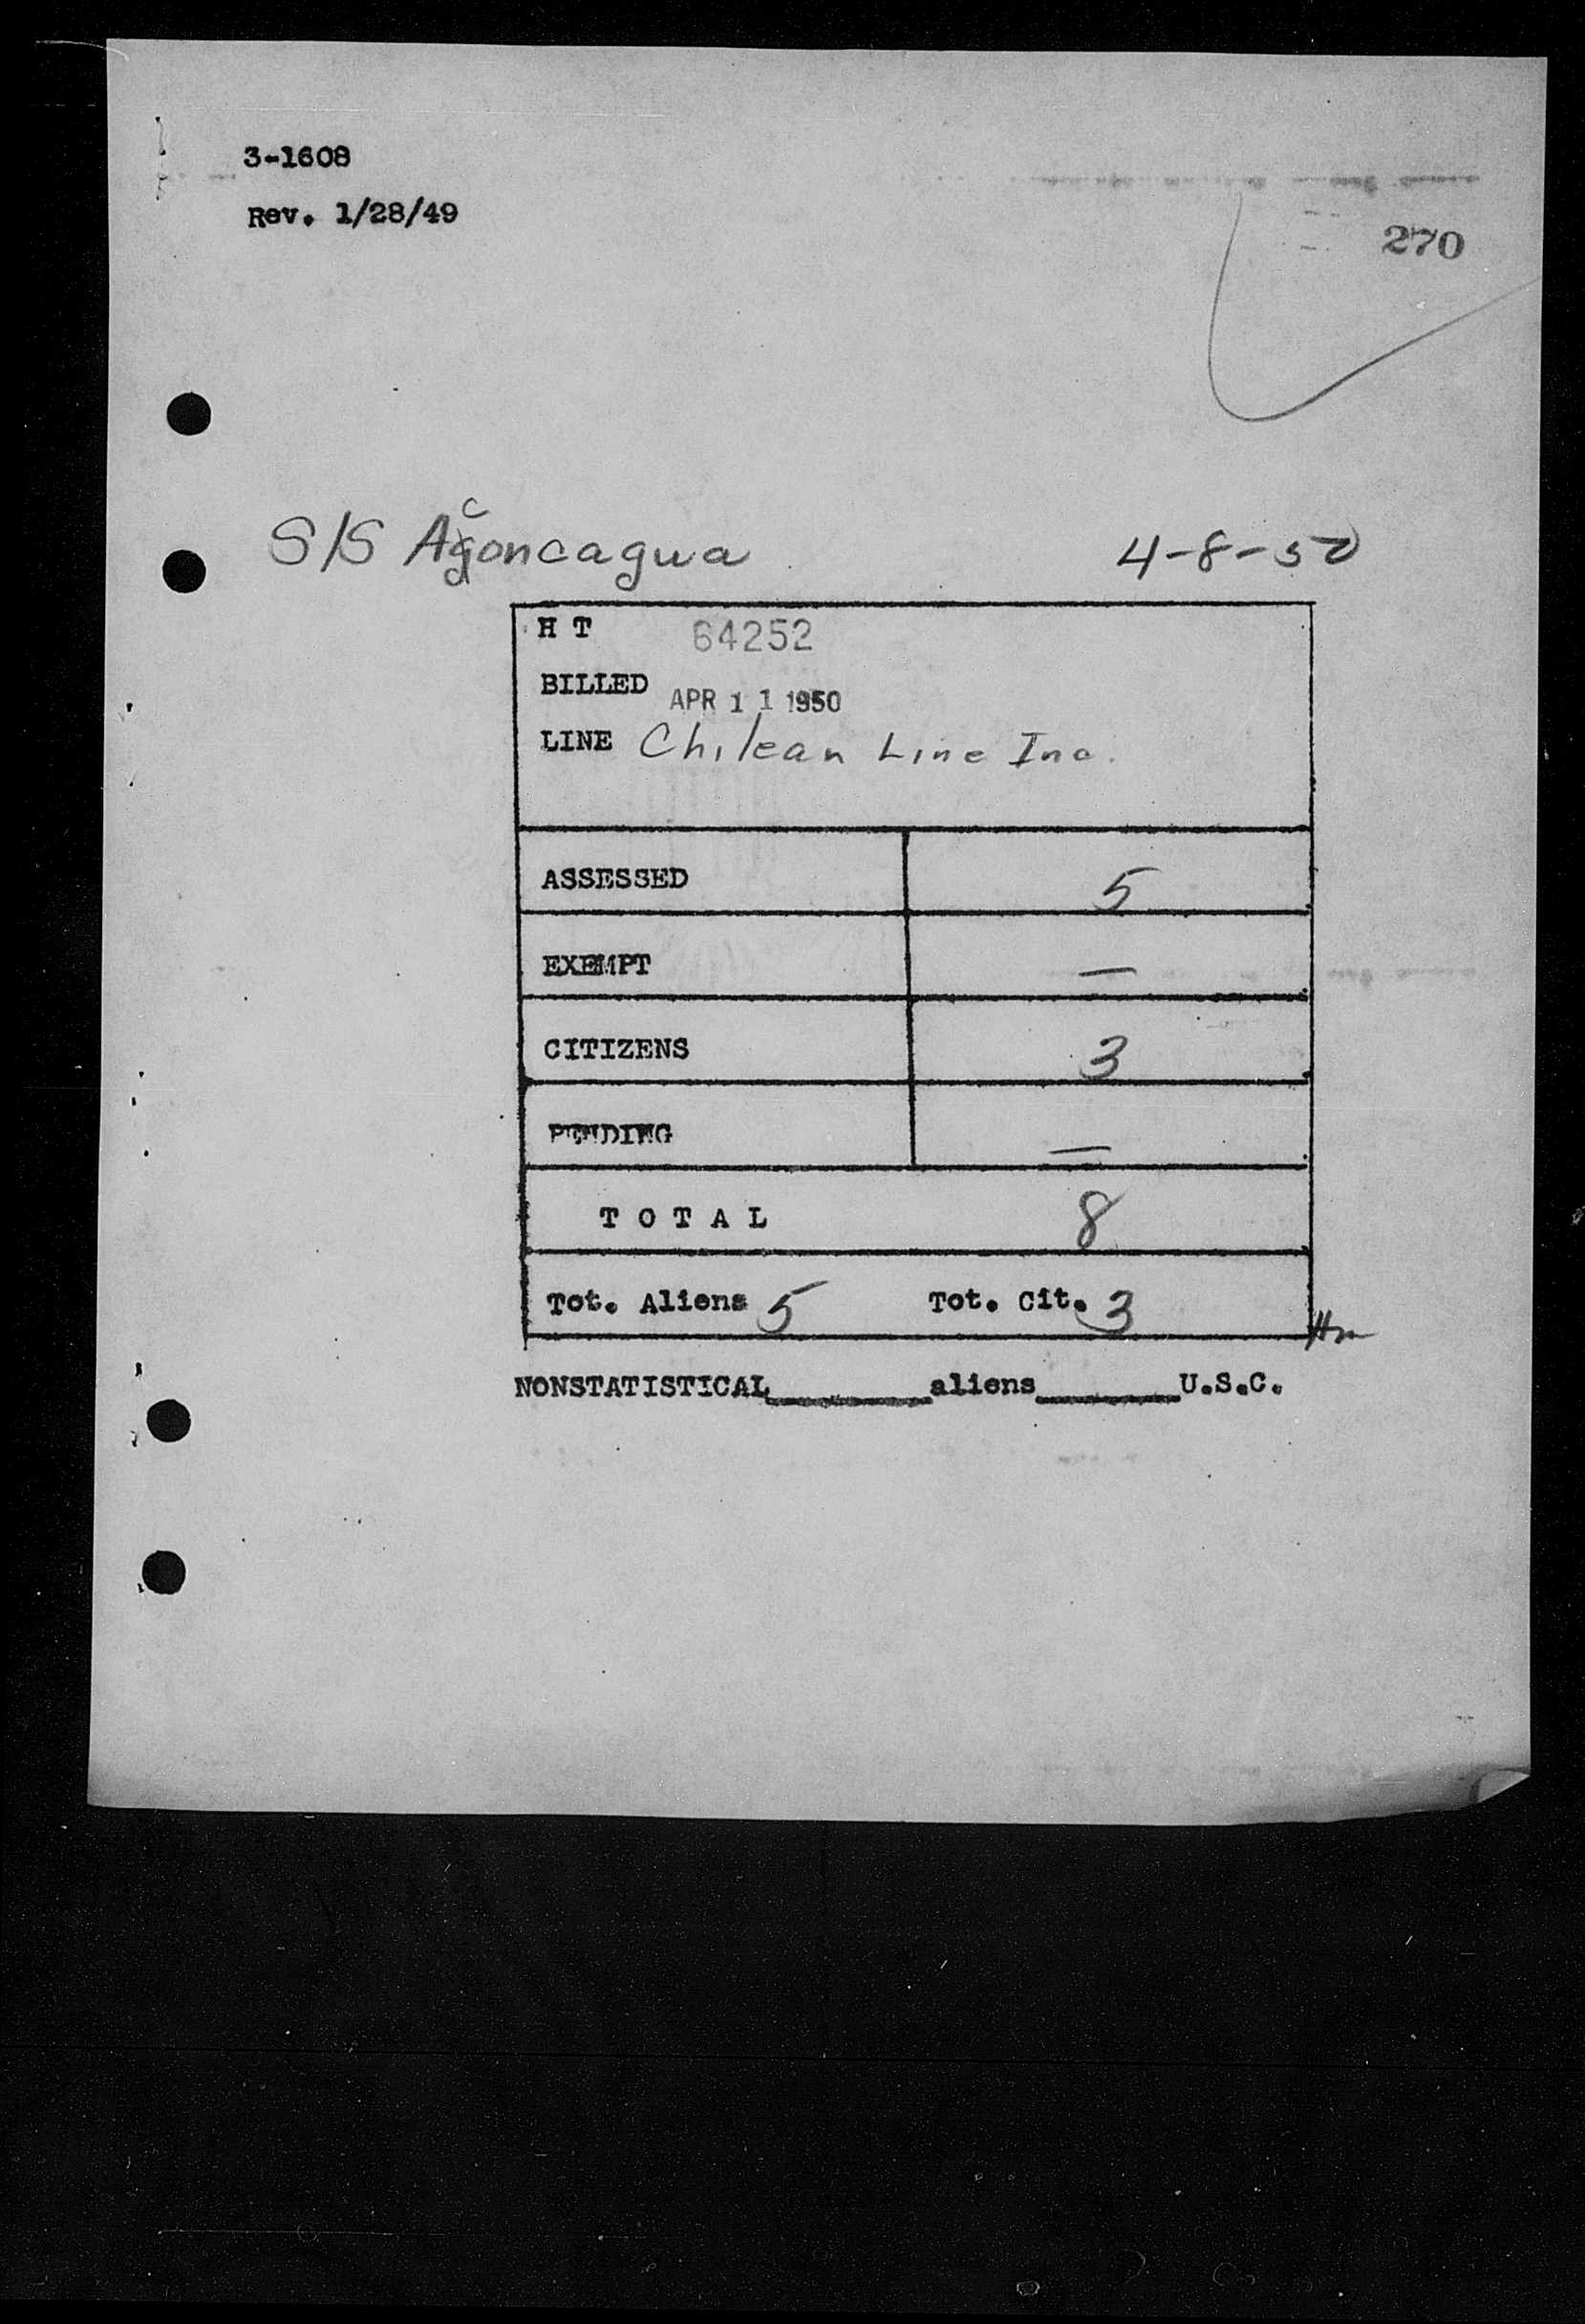 3-1608
Rev. 1/28/49
270
S/S Aconcagua 4-8-50
H T 64252
BILLED APR 11 1950
LINE Chilean Line Inc.
ASSESSED 5
EXEMPT —
CITIZENS 3
PENDING —
T O T A L 8
Tot. Aliens 5 Tot. Cit. 3
NONSTATISTICAL________aliens_______U.S.C.